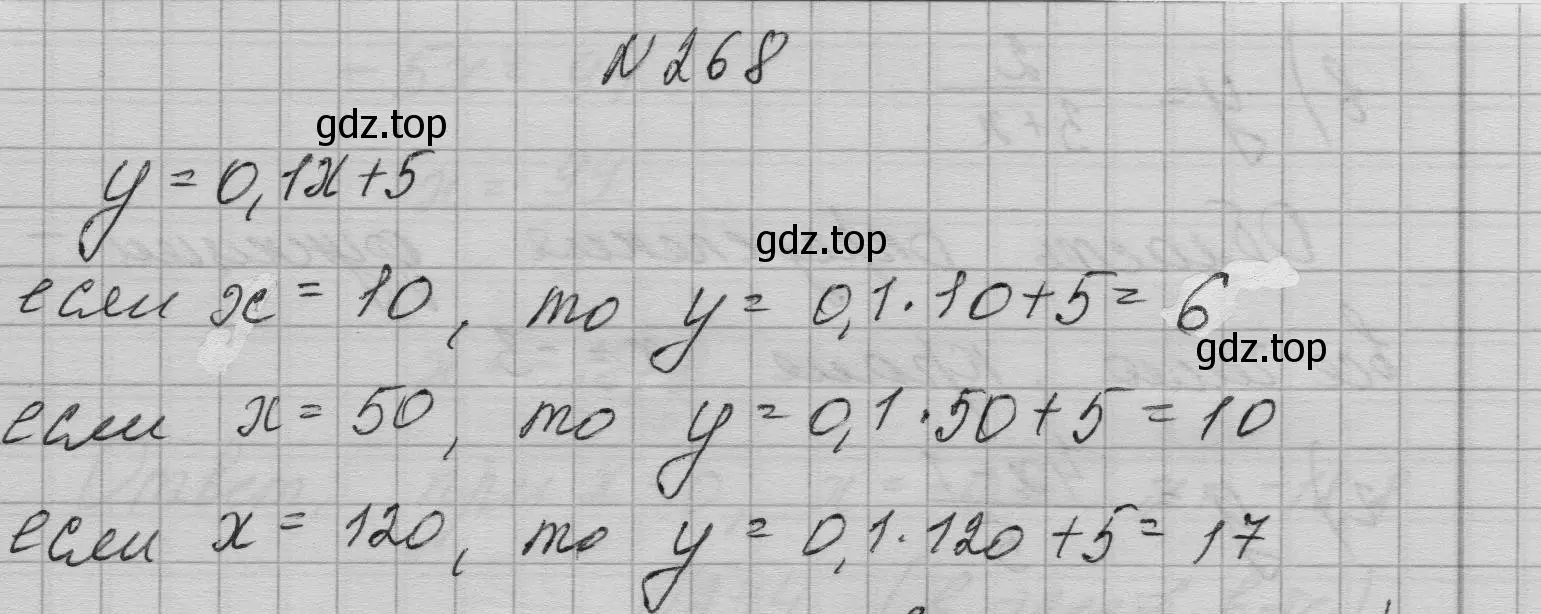 N 268
gdz.top
y = 0,1x + 5
gdz.top
если x = 10, то y = 0,1 · 10 + 5 = 6
gdz.top
если x = 50, то y = 0,1 · 50 + 5 = 10
если x = 120, то y = 0,1 · 120 + 5 = 17